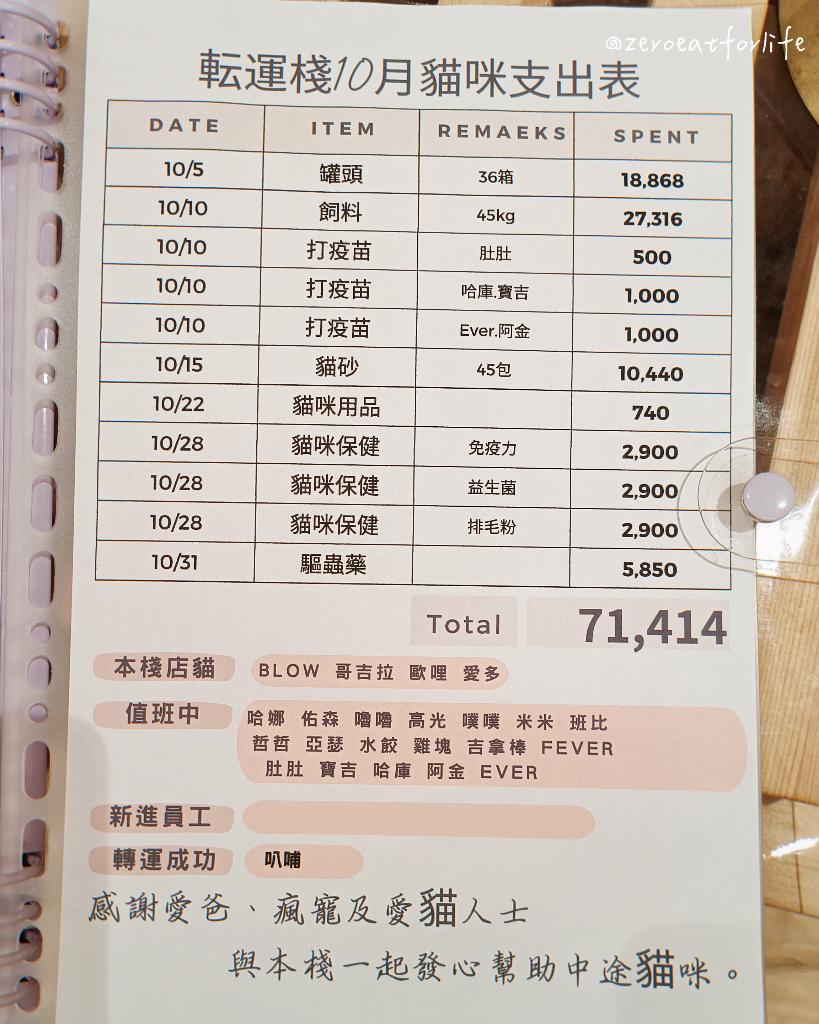 @zeroeatforlife
転運棧10月貓咪支出表
DATE ITEM REMAEKS SPENT
10/5 罐頭 36箱 18,868
10/10 飼料 45kg 27,316
10/10 打疫苗 肚肚 500
10/10 打疫苗 哈庫.寶吉 1,000
10/10 打疫苗 Ever.阿金 1,000
10/15 貓砂 45包 10,440
10/22 貓咪用品 740
10/28 貓咪保健 免疫力 2,900
10/28 貓咪保健 益生菌 2,900
10/28 貓咪保健 排毛粉 2,900
10/31 驅蟲藥 5,850
Total 71,414
本棧店貓 BLOW 哥吉拉 歐哩 愛多
值班中 哈娜 佑森 嚕嚕 高光 噗噗 米米 班比
哲哲 亞瑟 水餃 雞塊 吉拿棒 FEVER
肚肚 寶吉 哈庫 阿金 EVER
新進員工
轉運成功 叭哺
感謝愛爸、瘋寵及愛貓人士
與本棧一起發心幫助中途貓咪。